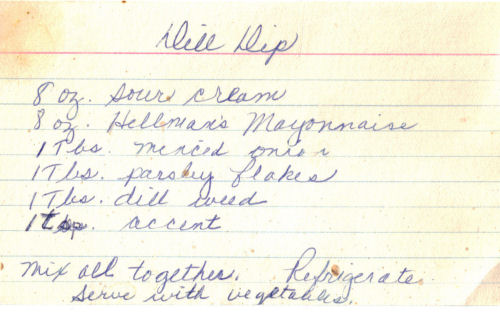 Dill Dip
8 oz. sour cream
8 oz. Hellman's Mayonnaise
1 Tbs. minced onion
1 Tbs. parsley flakes
1 Tbs. dill weed
1 Tsp. accent
Mix all together. Refrigerate.
Serve with vegetables.